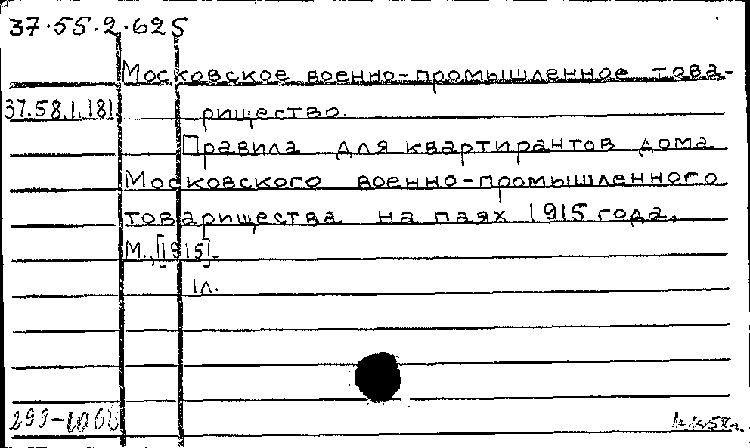 37.55.2.625
Московское военно-промышленное това-
37.58.1.181 рищество.
Правила для квартирантов дома
Московского военно-промышленного
товарищества на паях 1915 года.
М., [1915].
1л.